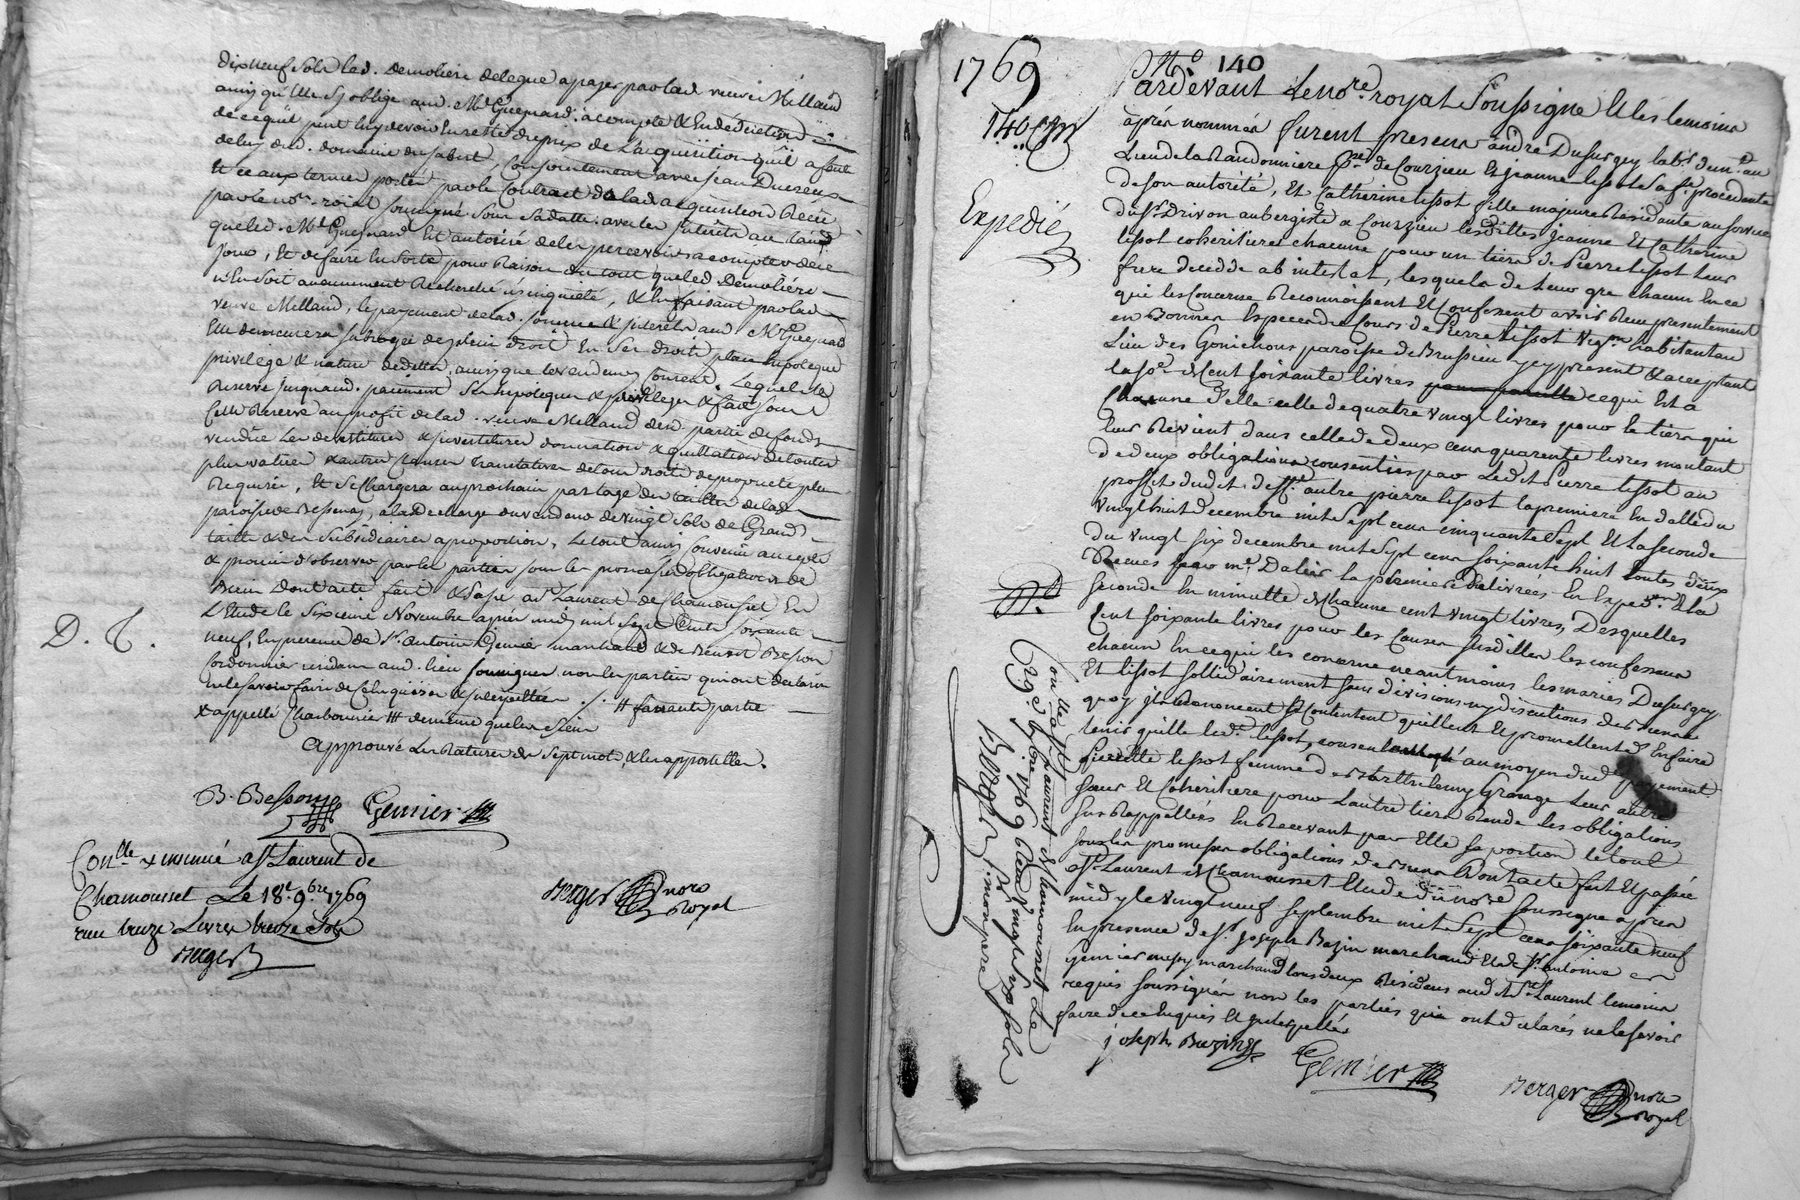 dix neuf sols led. Demoliere delegue a payer par lad. veuve Millaud
ainsy qu'elle s'y oblige aud. Me Guesnard acompte & En déduction
de ce qu'il peut luy devoir En reste du prix de L'acquisition qu'il a fait
de luy dud. domaine du Sabert, Conjointement avec Jean Ducreux
Et ce aux termes portés par le Contract de lad. acquisition Receu
par le nore. roial soussigné Sous Sa datte. avec les jnterets au tems
que led. Me Guesnard Est autorisé de les percevoir a compter de ce
jour, Et de faire En sorte pour Raison du tout que led. Demoliere
n'En soit aucunement Recherché n'y inquiété, & En faisant par lad.
veuve Millaud, le payement de lad. somme & jnterets aud. Me Guesnard
Elle demeurera subrogée de plein droit En Ses droits place hipoteque
privilege & nature de dettes, ainsy que le vendeur y Consent. Lequel se
Reserve jusqu'aud. paiement Ses hipoteques & privileges & fait sous
Cette Reserve au profit de lad. veuve Millaud desd. partie de fonds
vendüe Les devestitures & jnvestitures donnation & quittation de toutes
plus values & autres Clauses translatives de tous droits de proprieté plus
Requises, Et se Chargera au prochain partage des tailles de lad.
paroisse de Bessenay, a la décharge du vendeur de vingt sols de Grand
taille & des Subsidiaires a proportion, Le tout ainsy convenu accepté
& promis d'observer par les parties sous les promesses obligations de
Biens Dont acte fait & Passé a St Laurent de Chamousset En
L'Etude le Sixieme Novembre apres midy mil Sept Cents soixante
neuf, En presence de Sr. Antoine Genier marchand & de Benoit Besson
Cordonnier residans aud. lieu soussignes non les parties qui ont declaré
ne le savoir faire de ce Enquises & jnterpellées ./. # faisante partie
& appellé Charbonnier ### de meme que les siens
Approuvé Les Ratures de Sept mots, & les appostilles.
D. T.
B. Besson
Genier
Conlle & insinué a St. Laurent de
Chamousset Le 18e. 9bre 1769
reçu treize Livres treize sols
Berger
Berger nore
Royal
1769
No. 140
140
Expedié
Pardevant Le nore. royal Soussigné Et les temoins
après nommés furent presens andré Dusurgey labr. demt. au
Lieu de la Randonniere psse de Courzieu Et jeanne tissot Sa fe. procedante
de son autorité, Et Catherine tissot fille majeure Residante au service
du Sr. Drivon aubergiste a Courzieu lesdittes jeanne Et Catherine
tissot coheritieres chacune pour un tiers de Pierre tissot leur
frere decedé ab intestat, lesquels de leur gre chacun En ce
qui les Concerne Reconnoissent Et Confessent avoir Reçu presentement
en Bonnes Especes de Cours de Pierre tissot Vign. habitant au
Lieu des Gonichons paroisse de Brussieu jcy present & acceptant
la so. de Cent soixante livres ce qui Est a
Chacune d'elle celle de quatre vingt livres pour le tiers qui
leur Revient dans celle de deux cens quarente livres montant
de deux obligations consenties par Ledit Pierre tissot au
proffit dudit defft. autre pierre tissot la premiere En datte du
vingt huit decembre mil Sept cens cinquante Sept Et la seconde
du vingt six decembre mil Sept cens soixante huit toutes deux
Reçues par me. Dalin la premiere delivrées En Expedon. Et la
seconde En minutte de Chacune cent vingt livres, Desquelles
Cent soixante livres pour les Causes Susdittes les confesseurs
chacun En ce qui les concerne neantmoins les mariés Dusurgey
Et tissot sollidairement sans division ny discutions de
quoy jls Renoncent Se Contentent quittent Et promettent d'En faire
tenir quitte led. tissot, au moyen dud. payement.
Pierrette tissot femme de Barthelemy Grange leur autre
soeur Et Coheritiere pour L'autre tiers Rende les obligations
Sus Rappellées En Recevant par Elle Sa portion le tout
sous les promesses obligations de Biens Dont acte fait Et passé
a St. Laurent de Chamousset Etude du nore. soussigné après
midy le vingt neuf Septembre mil Sept cens soixante neuf
En presence de Sr. Joseph Bazin marchand Et de Sr. antoine
Genier aussy marchand tous deux Residens aud. St. Laurent temoins
requis soussignés non les parties qui ont declarés ne le savoir
faire de ce Enquis Et jnterpellés
Conlle a St. Laurent de Chamousset Le
29e. 7bre 1769 Reçu vingt Six sols
Berger
joseph Bazin
Genier
Berger nore
Royal